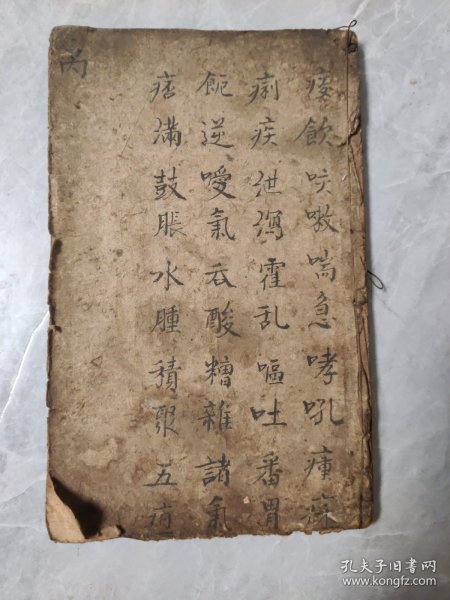 痰飲咳嗽喘急哮吼
痢疾泄瀉霍乱嘔吐番胃
逆噯氣吞酸糟雜諸氣
痞滿鼓脹水腫積聚五疸
丙
孔夫子旧书网
www.kongfz.com